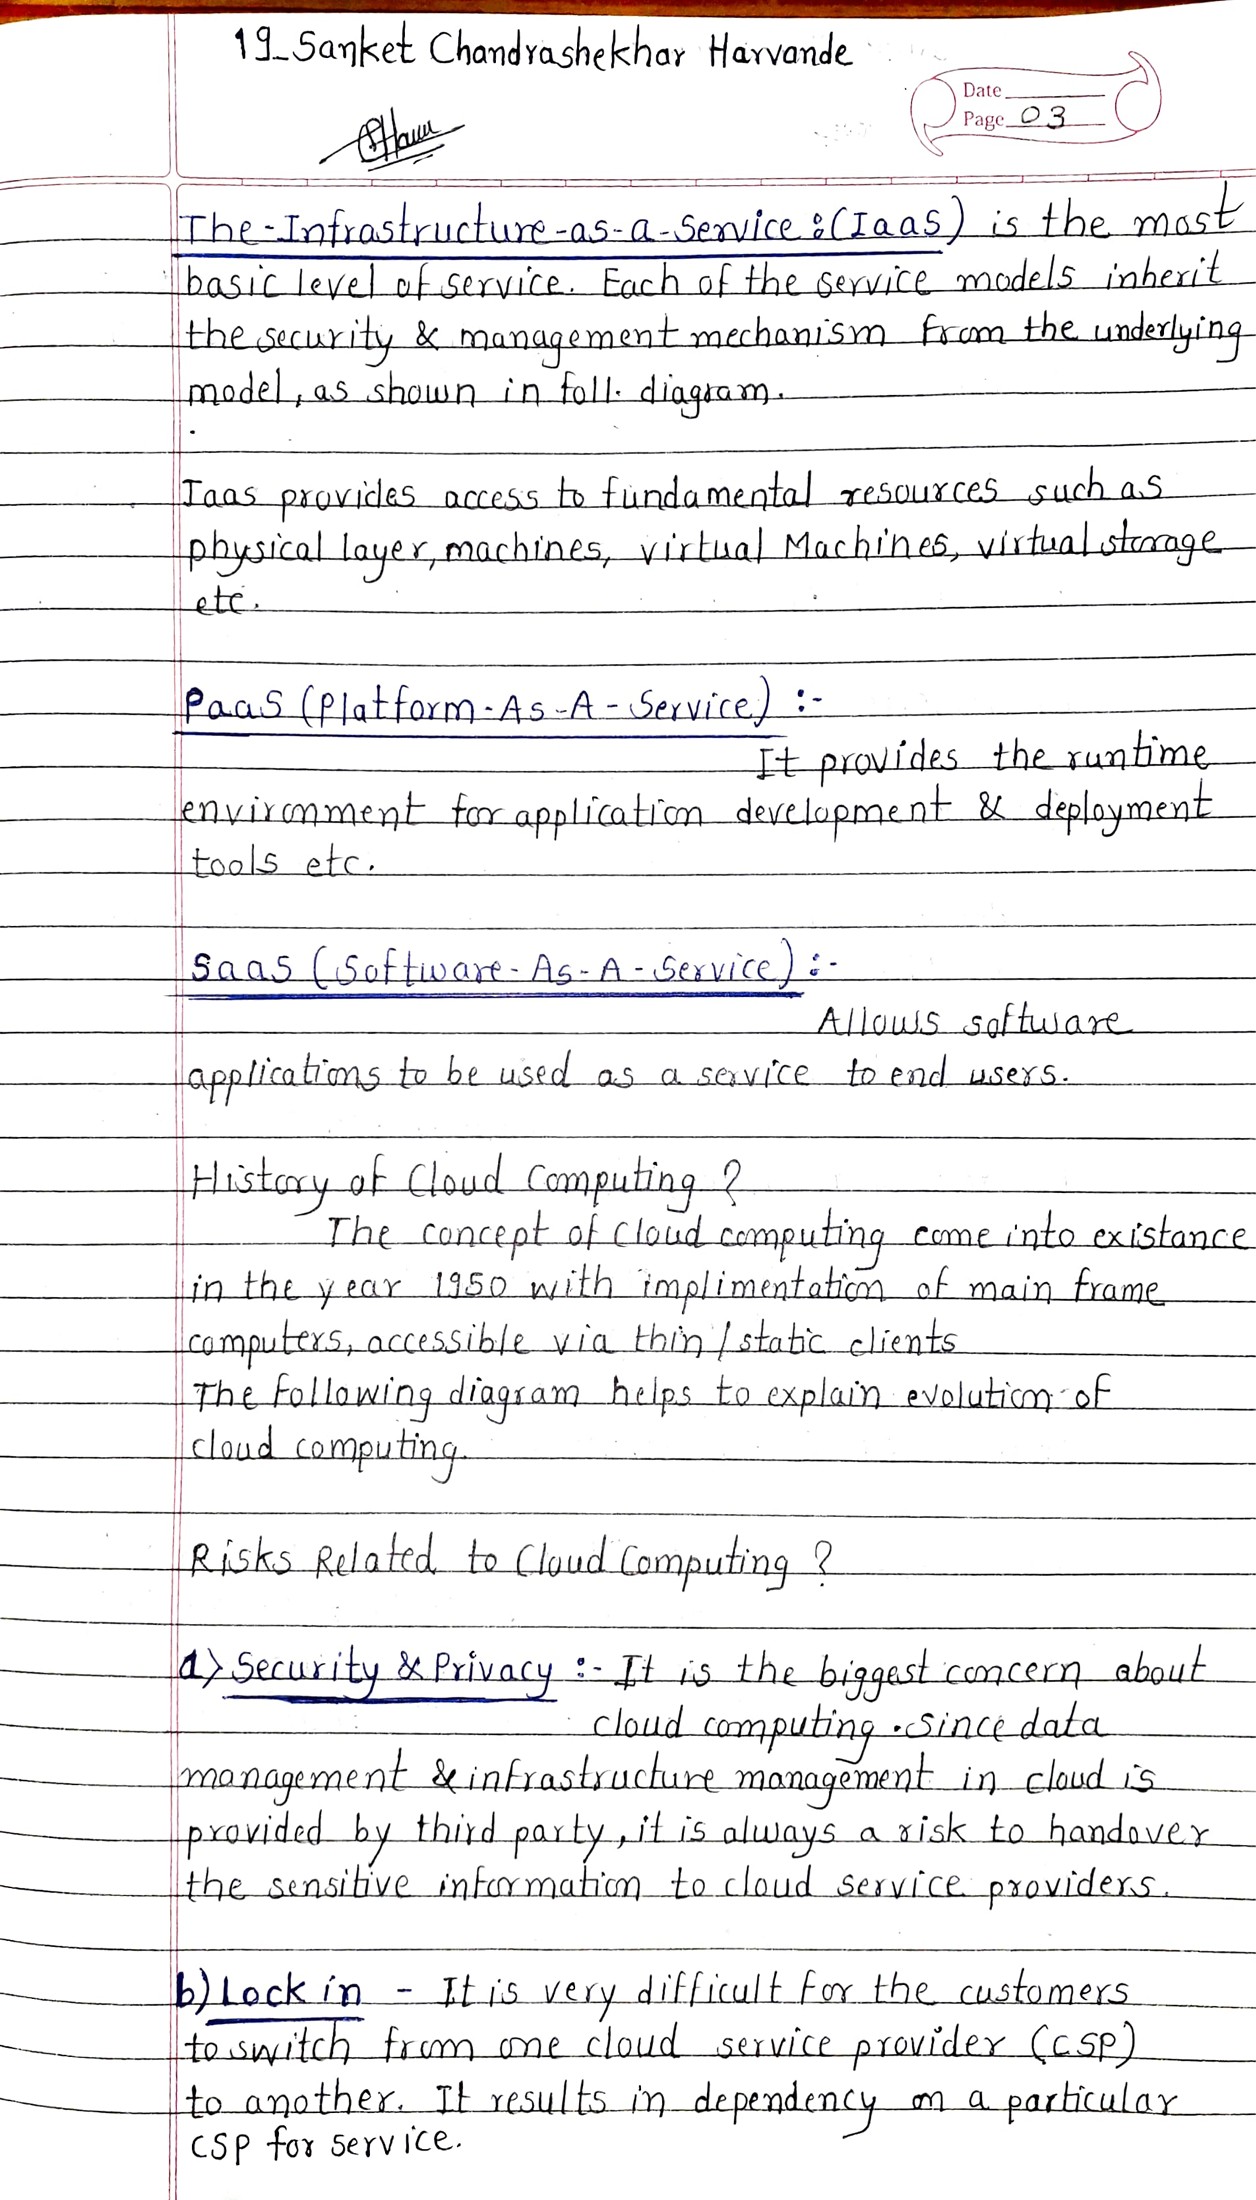 19_Sanket Chandrashekhar Harvande
Date
Page 03
The-Infrastructure-as-a-Service:(Iaas) is the most
basic level of service. Each of the service models inherit
the security & management mechanism from the underlying
model, as shown in foll. diagram.
Iaas provides access to fundamental resources such as
physical layer, machines, virtual Machines, virtual storage
etc.
PaaS (Platform-As-A-Service) :-
It provides the runtime
environment for application development & deployment
tools etc.
SaaS (Software-As-A-Service) :-
Allows software
applications to be used as a service to end users.
History of Cloud Computing ?
The concept of Cloud computing come into existance
in the year 1950 with implimentation of main frame
computers, accessible via thin / static clients
The following diagram helps to explain evolution of
cloud computing.
Risks Related to Cloud Computing ?
a) Security & Privacy :- It is the biggest concern about
cloud computing. since data
management & infrastructure management in cloud is
provided by third party, it is always a risk to handover
the sensitive information to cloud service providers.
b) Lock in - It is very difficult for the customers
to switch from one cloud service provider (CSP)
to another. It results in dependency on a particular
CSP for service.